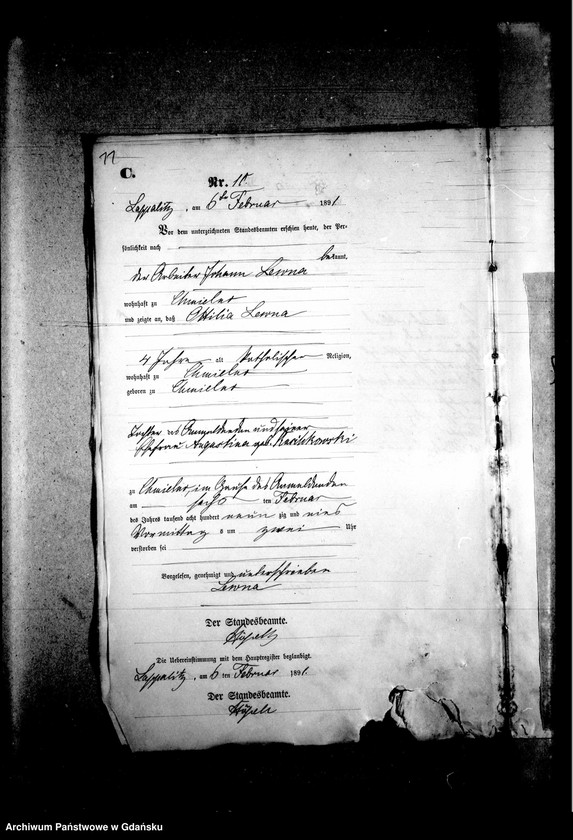 C.
Nr. 11
Lappalitz, am 6ten Februar 1891
Vor dem unterzeichneten Standesbeamten erschien heute, der Per-
sönlichkeit nach
bekannt,
der Arbeiter Johann Lewna
wohnhaft zu Chmielno
und zeigte an, daß Ottilia Lewna
4 Jahre alt katholischer Religion,
wohnhaft zu Chmielno
geboren zu Chmielno
Tochter des Anmeldenden und seiner
Ehefrau Augustina geb.
zu Chmielno, im Hause des Anmeldenden
am sechs ten Februar
des Jahres tausend acht hundert neunzig und eins
Vormittags um zwei Uhr
verstorben sei
Vorgelesen, genehmigt und unterschrieben
Lewna
Der Standesbeamte.
Die Uebereinstimmung mit dem Hauptregister beglaubigt.
Lappalitz, am 6 ten Februar 1891.
Der Standesbeamte.
Archiwum Państwowe w Gdańsku